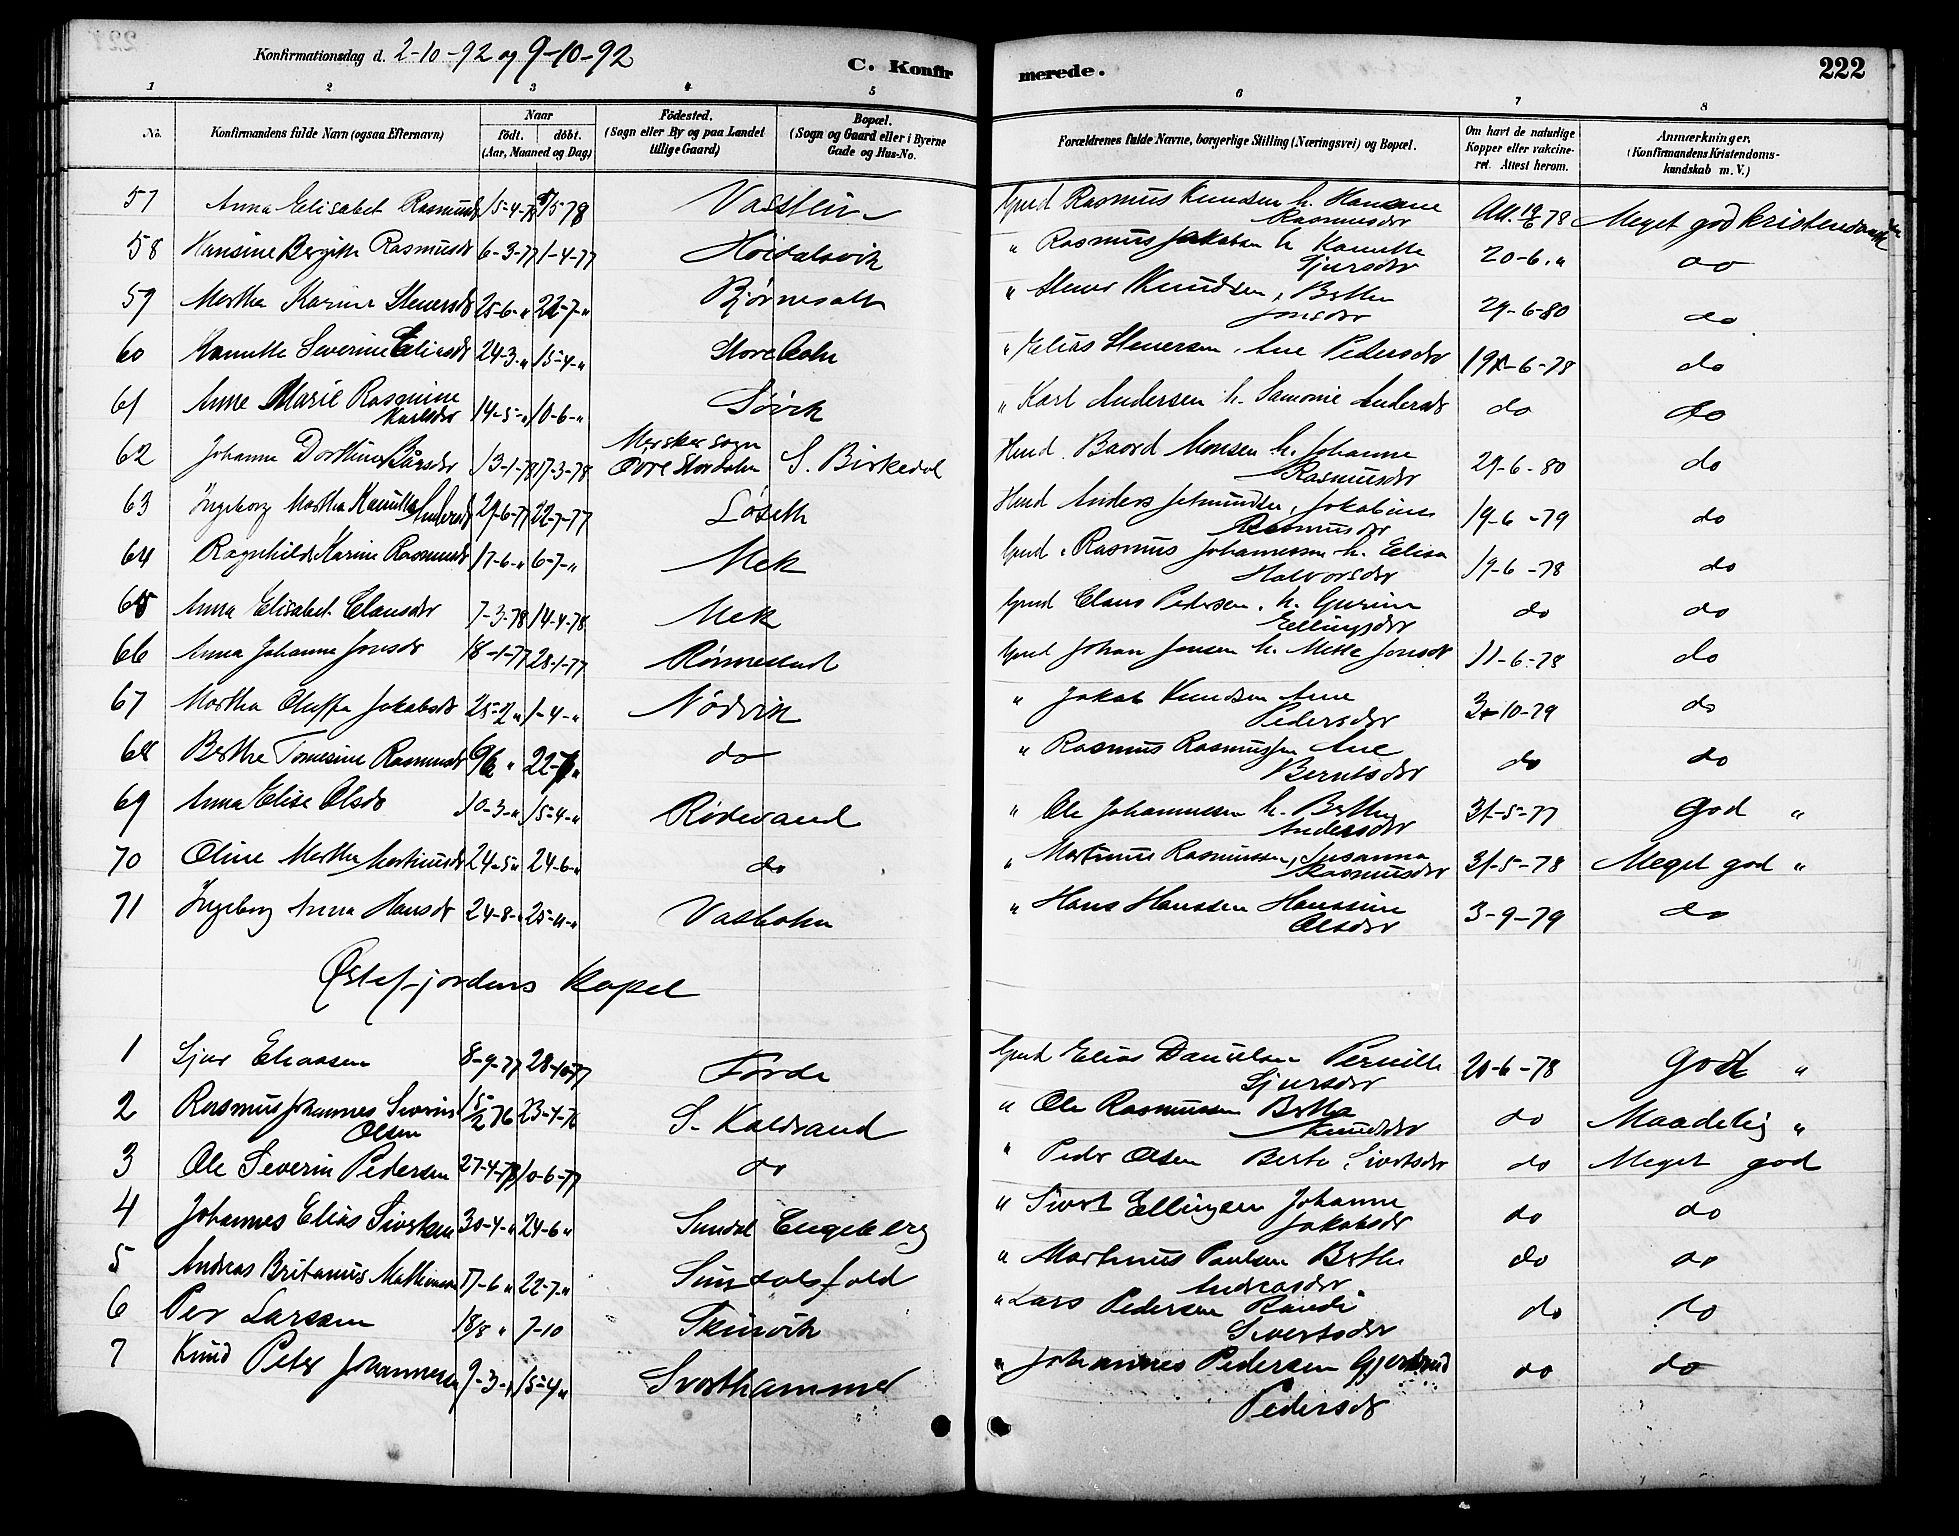 Konfirmationsdag d. 2-10-92 og 9-10-92
C. Konfirmerede.
222
1 2 3 4 5 6 7 8
No.
Konfirmandens fulde Navn (ogsaa Efternavn)
Naar
födt. döbt.
(Aar, Maaned og Dag)
Födested.
(Sogn eller By og paa Landet
tillige Gaard)
Bopæl.
(Sogn og Gaard eller i Byerne
Gade og Hus-No.
Forældrenes fulde Navne, borgerlige Stilling (Næringsvei) og Bopæl.
Om havt de naturlige
Kopper eller vakcine-
ret. Attest herom.
Anmærkninger,
(Konfirmandens Kristendoms-
kundskab m. V.)
57 Anna Elisabet Rasmusdr 15-4-78 /5 78 Gmd Rasmus Knudsen h. Hansine Rasmusdr Att. 78 Meget god kristendomsk
58 Hansine Bergitte Rasmusdr 6-3-77 1-4-77 Höidalsvik " Rasmus Jakobsen h Kanutte Sjursdr 20-6-" do
59 Martha Karine Stenersdr 25-6-" 22-7-" " Stener Knudsen, Berthe Jonsdr 29-6-80 do
60 Kanutte Severine Eliasdr 24-3-" 15-4-" Storeholm " Elias Stenersen, Ane Pedersdr 19-6-78 do
61 Anne Marie Rasmine Karlsdr 14-5-" 10-6-" Søvik " Karl Andersen h. Samonie Andersdr do do
62 Johanne Dorthea 13-1-78 17-3-78 sogn Övre Stordalen S. Birkedal Hmd Baard Monsen h. Johanne Rasmusdr 29-6-80 do
63 Ingeborg Martha Kanutta Andersdr 29-6-77 22-7-77 Løseth Hmd Anders, Jakobine Rasmusdr 19-6-79 do
64 Ragnhild Karine Rasmusdr 17-6-" 6-7-" Mek Gmd. Rasmus Johannessen h. Elisa Halvorsdr 19-6-78 do
65 Anna Elisabet Clausdr 7-3-78 14-4-78 Mek Gmd Claus Pedersen h. Gurine Ellingsdr do do
66 Anna Johanne Jonsdr 18-1-77 28-1-77 Rönnestad Gmd Johan Jonsen h. Mette Jonsdr 11-6-78 do
67 Martha Oluffa Jakobsdr 25-2-" 1-4-" Nödvik " Jakob Knudsen Ane Pedersdr 3-10-79 do
68 Berthe Tomesine Rasmusdr 6/6 " 22-7-" do " Rasmus Rasmussen Ane Berntsdr do do
69 Anna Elise Olsdr 10-3-" 15-4-" Rödesand " Ole Johannessen h. Berthe Andersdr 31-5-77 god "
70 Oline Martha Martinusdr 24-5-" 24-6-" do " Martinus Rasmussen, Susanna Rasmusdr 31-5-78 Meget god "
71 Ingeborg Anna Hansdr 24-8-" 25-11-" Vasbotn " Hans Hanssen Hanssine Olsdr 3-9-79 do
Østefjordens Kapel
1 Sjur Eliassen 8-9-77 28-10-77 Förde Gmd Elias Danielsen Pernille Sjursdr 20-6-78 god "
2 Rasmus Johannes Severin Olsen 15/2 76 23-4-76 S. Kaldvand " Ole Rasmussen Berthe Knudsdr do Maadelig "
3 Ole Severin Pedersen 27-4-77 10-6-77 do " Peder Olsen Berte Sivertsdr do Meget god
4 Johannes Elias Sivertsen 30-4-" 24-6-" Sundal Engeberg " Sivert Ellingsen Johanne Jakobsdr do do
5 Andreas Britanus Mathinusen 17-6 " 22-7-" Sundalsfold " Martinus Paulsen Berthe Andreasdr do do
6 Per Larsen 18/8 " 7-10 Skinvik " Lars Pedersen Randi Sivertsdr do do
7 Knud Peter Johannessen 9-3-" 15-4-" Svorthammer " Johannes Pedersen Gjertrud Pedersdr do do